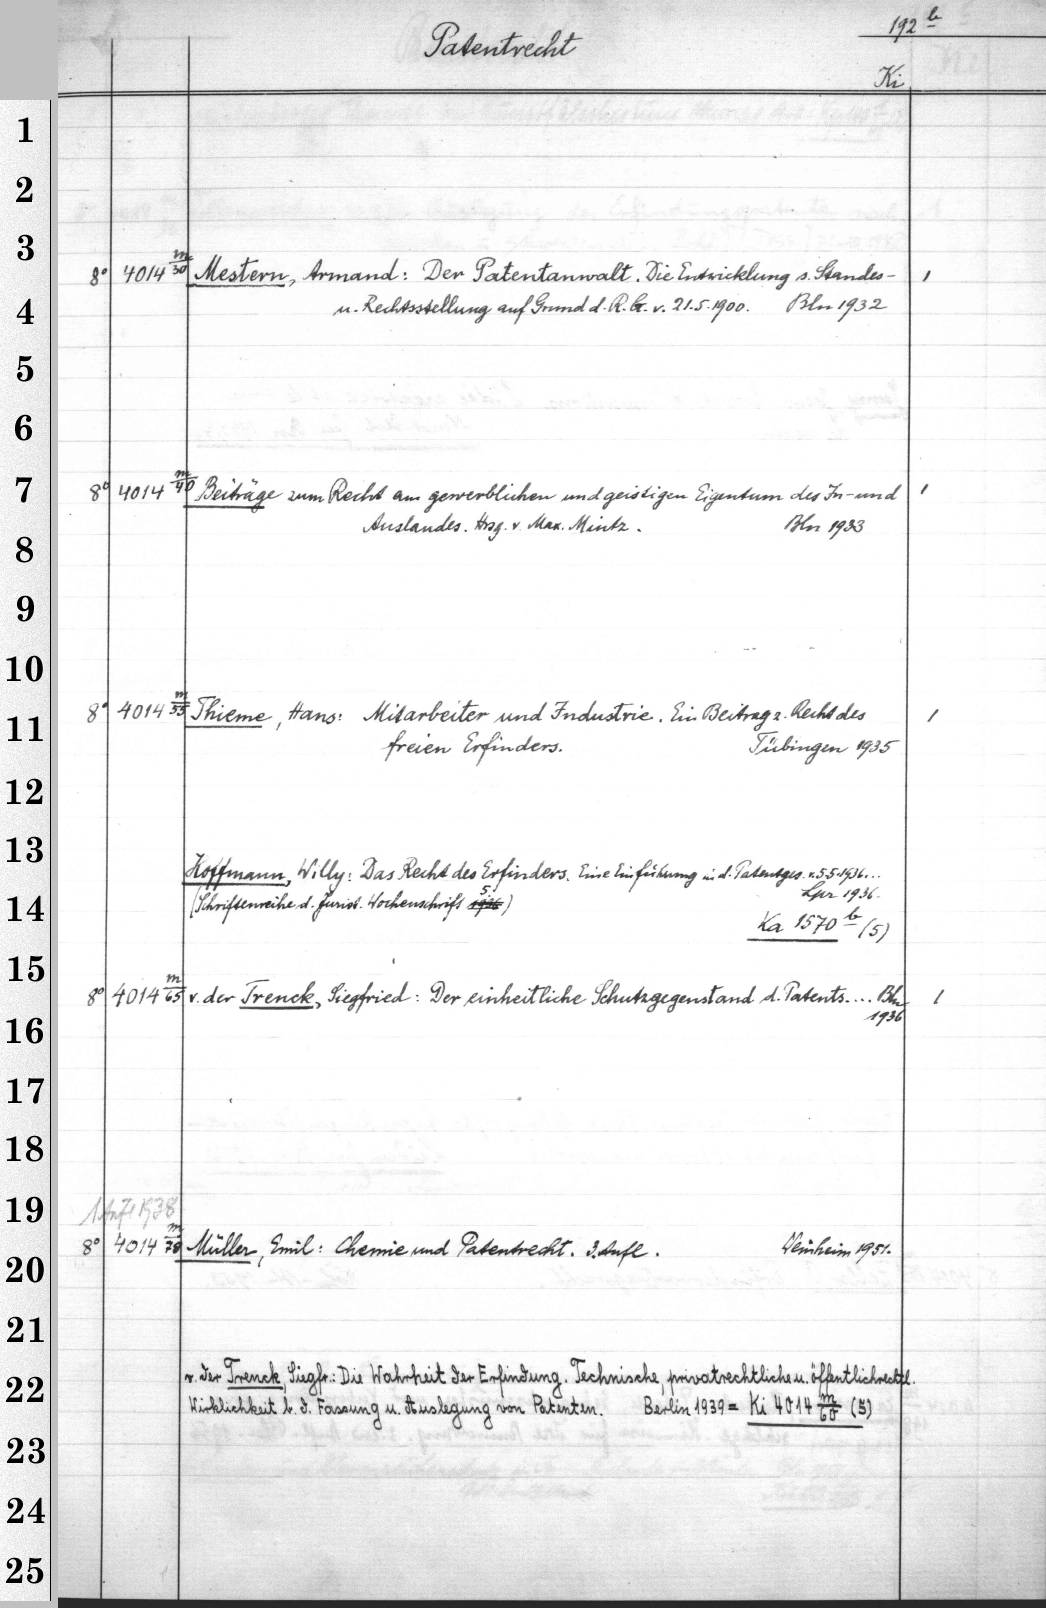 192 b
Patentrecht
Ki
1
2
3
8° 4014 m/30 Mestern, Armand: Der Patentanwalt. Die Entwicklung s. Standes-
u. Rechtsstellung auf Grund d. R.G. v. 21.5.1900. Bln 1932
4
5
6
7
8° 4014 m/40 Beiträge zum Recht am gewerblichen und geistigen Eigentum des In- und
Auslandes. Hrsg. v. Max. Mintz. Bln 1933
8
9
10
8° 4014 m/55 Thieme, Hans: Mitarbeiter und Industrie. Ein Beitrag z. Recht des
11
freien Erfinders. Tübingen 1935
12
13
Hoffmann, Willy: Das Recht des Erfinders. Eine Einführung in d. Patentges. v. 5.5.1936...
Lpz 1936.
(Schriftenreihe d. Jurist. Wochenschrift 5.)
14
Ka 1570 b (5)
15
8° 4014 m/65 v. der Trenck, Siegfried: Der einheitliche Schutzgegenstand d. Patents.... Bln
1936
16
17
18
19
1. Aufl 1938
8° 4014 m/70 Müller, Emil: Chemie und Patentrecht. 3. Aufl. Weinheim 1951.
20
21
v. der Trenck, Siegfr.: Die Wahrheit der Erfindung. Technische, privatrechtliche u. öffentlichrechtl.
22
Wirklichkeit b. d. Fassung u. Auslegung von Patenten. Berlin 1939 = Ki 4014 m/60 (5)
23
24
25